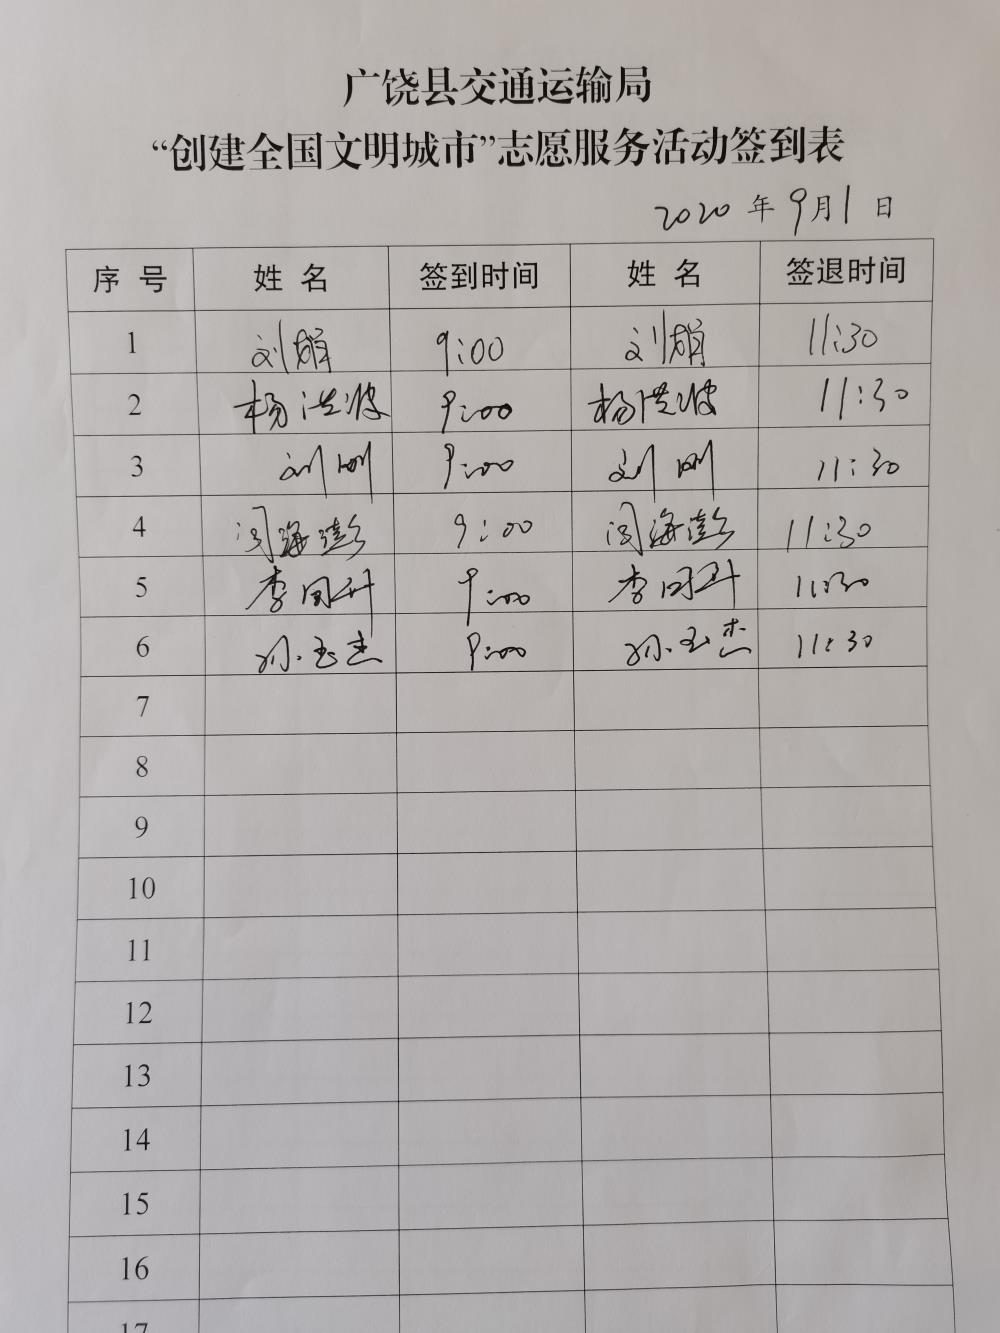 广饶县交通运输局
“创建全国文明城市”志愿服务活动签到表
2020 年 9月1日
序号 姓名 签到时间 姓名 签退时间
1 刘娟 9:00 刘娟 11:30
2 杨洪波 9:00 杨洪波 11:30
3 刘刚 9:00 刘刚 11:30
4 闫海澎 9:00 闫海澎 11:30
5 李国升 9:00 李国升 11:30
6 孙玉杰 9:00 孙玉杰 11:30
7
8
9
10
11
12
13
14
15
16
17